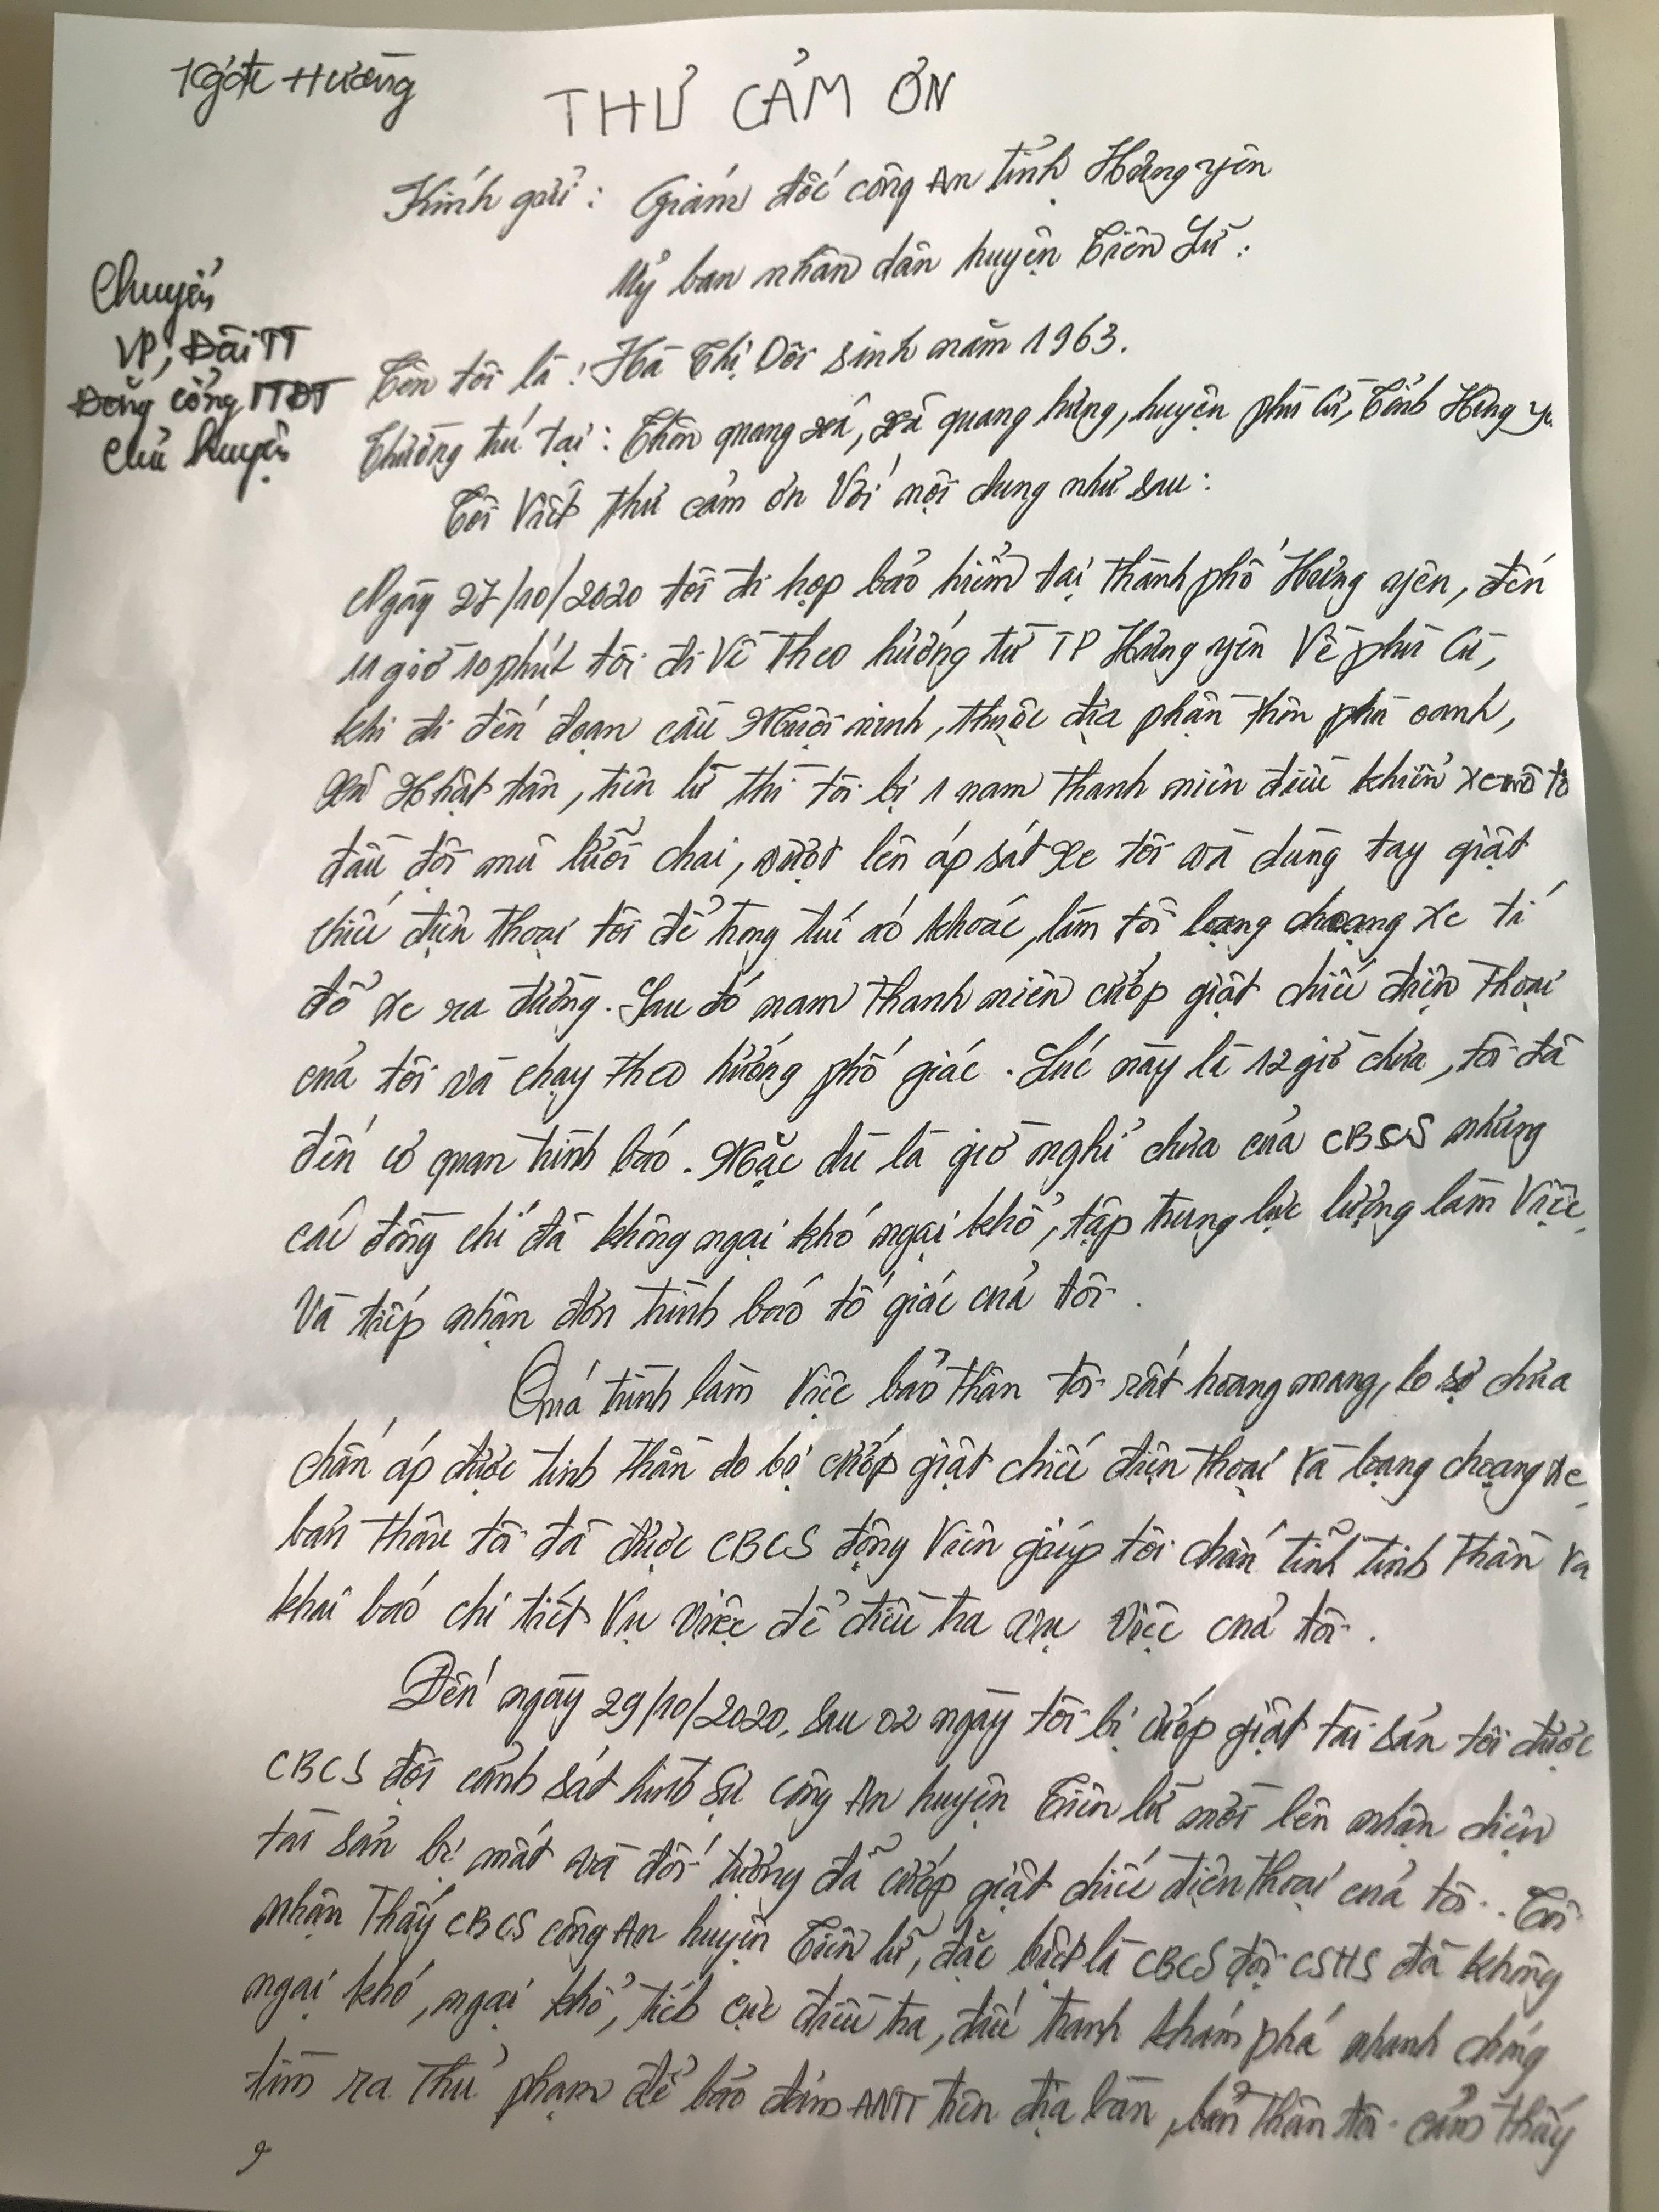 THƯ CẢM ƠN
Kính gửi: Giám đốc công An tỉnh Hưng yên
Uỷ ban nhân dân huyện Tiên Lữ:
Chuyển
VP, Đài TT
Đăng cổng TTĐT
của huyện
Tên tôi là: Hà Thị Dôi sinh năm 1963.
Thường trú tại: Thôn quang xá, xã quang hưng, huyện phù Cừ, Tỉnh Hưng yê
Tôi viết thư cảm ơn Với nội dung như sau:
Ngày 27/10/2020 tôi đi họp bảo hiểm tại thành phố Hưng yên, đến
11 giờ 10 phút tôi đi Về Theo hướng từ TP Hưng yên Về phù Cừ,
khi đi đến đoạn cầu Mười ninh, thuộc địa phận thôn phù oanh,
xã Nhật tân, tiên lữ thì tôi bị 1 nam thanh niên điều khiển xe mô tô
đầu đội mũ lưỡi chai, vượt lên áp sát xe tôi và dùng tay giật
chiếc điện thoại tôi để trong túi áo khoác, làm tôi loạng choạng xe tí
đổ xe ra đường. Sau đó nam thanh niên cướp giật chiếc điện thoại
của tôi và chạy theo hướng phố giác. Lúc này là 12 giờ chưa, tôi đã
đến cơ quan trình báo. Mặc dù là giờ nghỉ chưa của CBCS nhưng
các đồng chí đã không ngại khó ngại khổ, tập trung lực lượng làm việc,
Và tiếp nhận đơn trình báo tố giác của tôi.
Quá trình làm việc bản thân tôi rất hoang mang, lo sợ chưa
chấn áp được tinh thần do bị cướp giật chiếc điện thoại và loạng choạng xe,
bản thân tôi đã được CBCS động Viên giúp tôi chấn tĩnh tinh thần và
khai báo chi tiết Vụ việc để điều tra vụ việc của tôi.
Đến ngày 29/10/2020, sau 02 ngày tôi bị cướp giật tài sản tôi được
CBCS đội cảnh sát hình sự công An huyện Tiên lữ mời lên nhận diện
tài sản bị mất và đối tượng đã cướp giật chiếc điện thoại của tôi. Tôi
nhận Thấy CBCS công An huyện Tiên lữ, đặc biệt là CBCS đội CSHS đã không
ngại khó, ngại khổ, tích cực điều tra, đấu tranh khám phá nhanh chóng
tìm ra thủ phạm để bảo đảm ANTT trên địa bàn, bản thân tôi cảm thấy